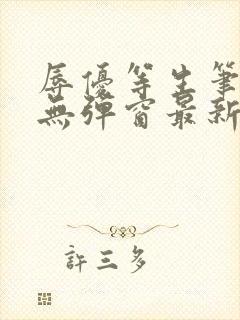 辱優等生筆
無彈窗最新
許三多